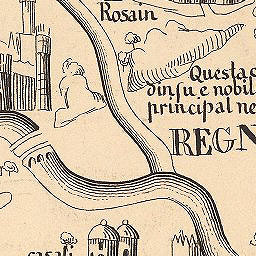 Rosain
Questa c
dinsu e nobil
principal ne
REGN
casasi